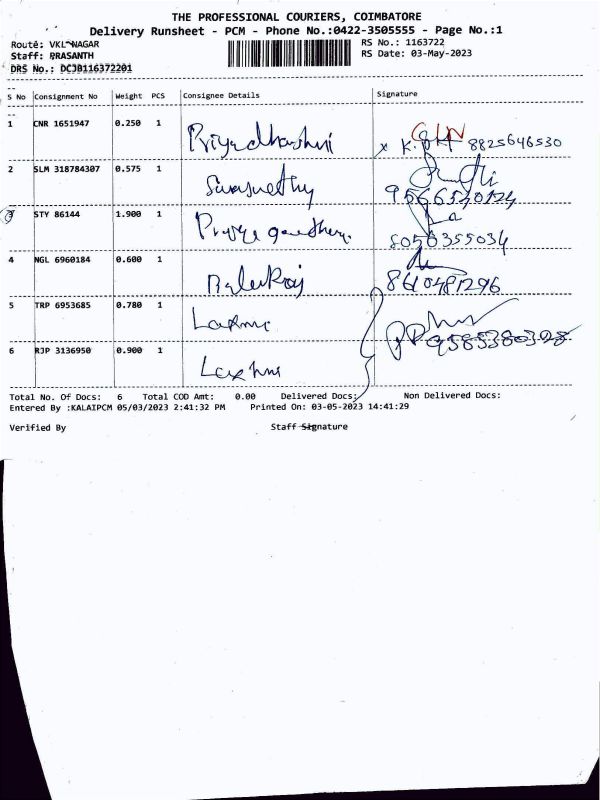 THE PROFESSIONAL COURIERS, COIMBATORE
Delivery Runsheet - PCM - Phone No.:0422-3505555 - Page No.:1
Route: VKL NAGAR
RS No.: 1163722
Staff: PRASANTH
RS Date: 03-May-2023
DRS No.: DCJB116372201
S No Consignment No Weight PCS Consignee Details Signature
1 CNR 1651947 0.250 1 Priyadharshni x 8825646530
2 SLM 318784307 0.575 1
3 STY 86144 1.900 1 8056355034
4 NGL 6960184 0.600 1 8610481296
5 TRP 6953685 0.780 1 Laxmi
6 RJP 3136950 0.900 1 Laxhmi 9585380328
Total No. Of Docs: 6 Total COD Amt: 0.00 Delivered Docs: Non Delivered Docs:
Entered By :KALAIPCM 05/03/2023 2:41:32 PM Printed On: 03-05-2023 14:41:29
Verified By Staff Signature